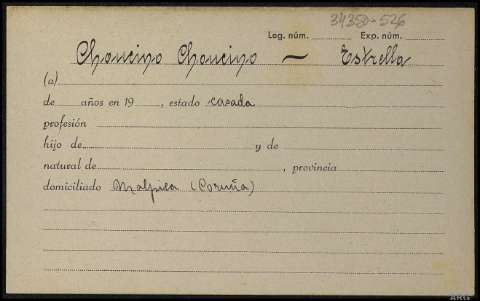 34350-526
Leg. núm. Exp. núm.
Chouciño Chouciño — Estrella
(a)
de años en 19 , estado casada
profesión
hijo de y de
natural de , provincia
domiciliado Malpica (Coruña)